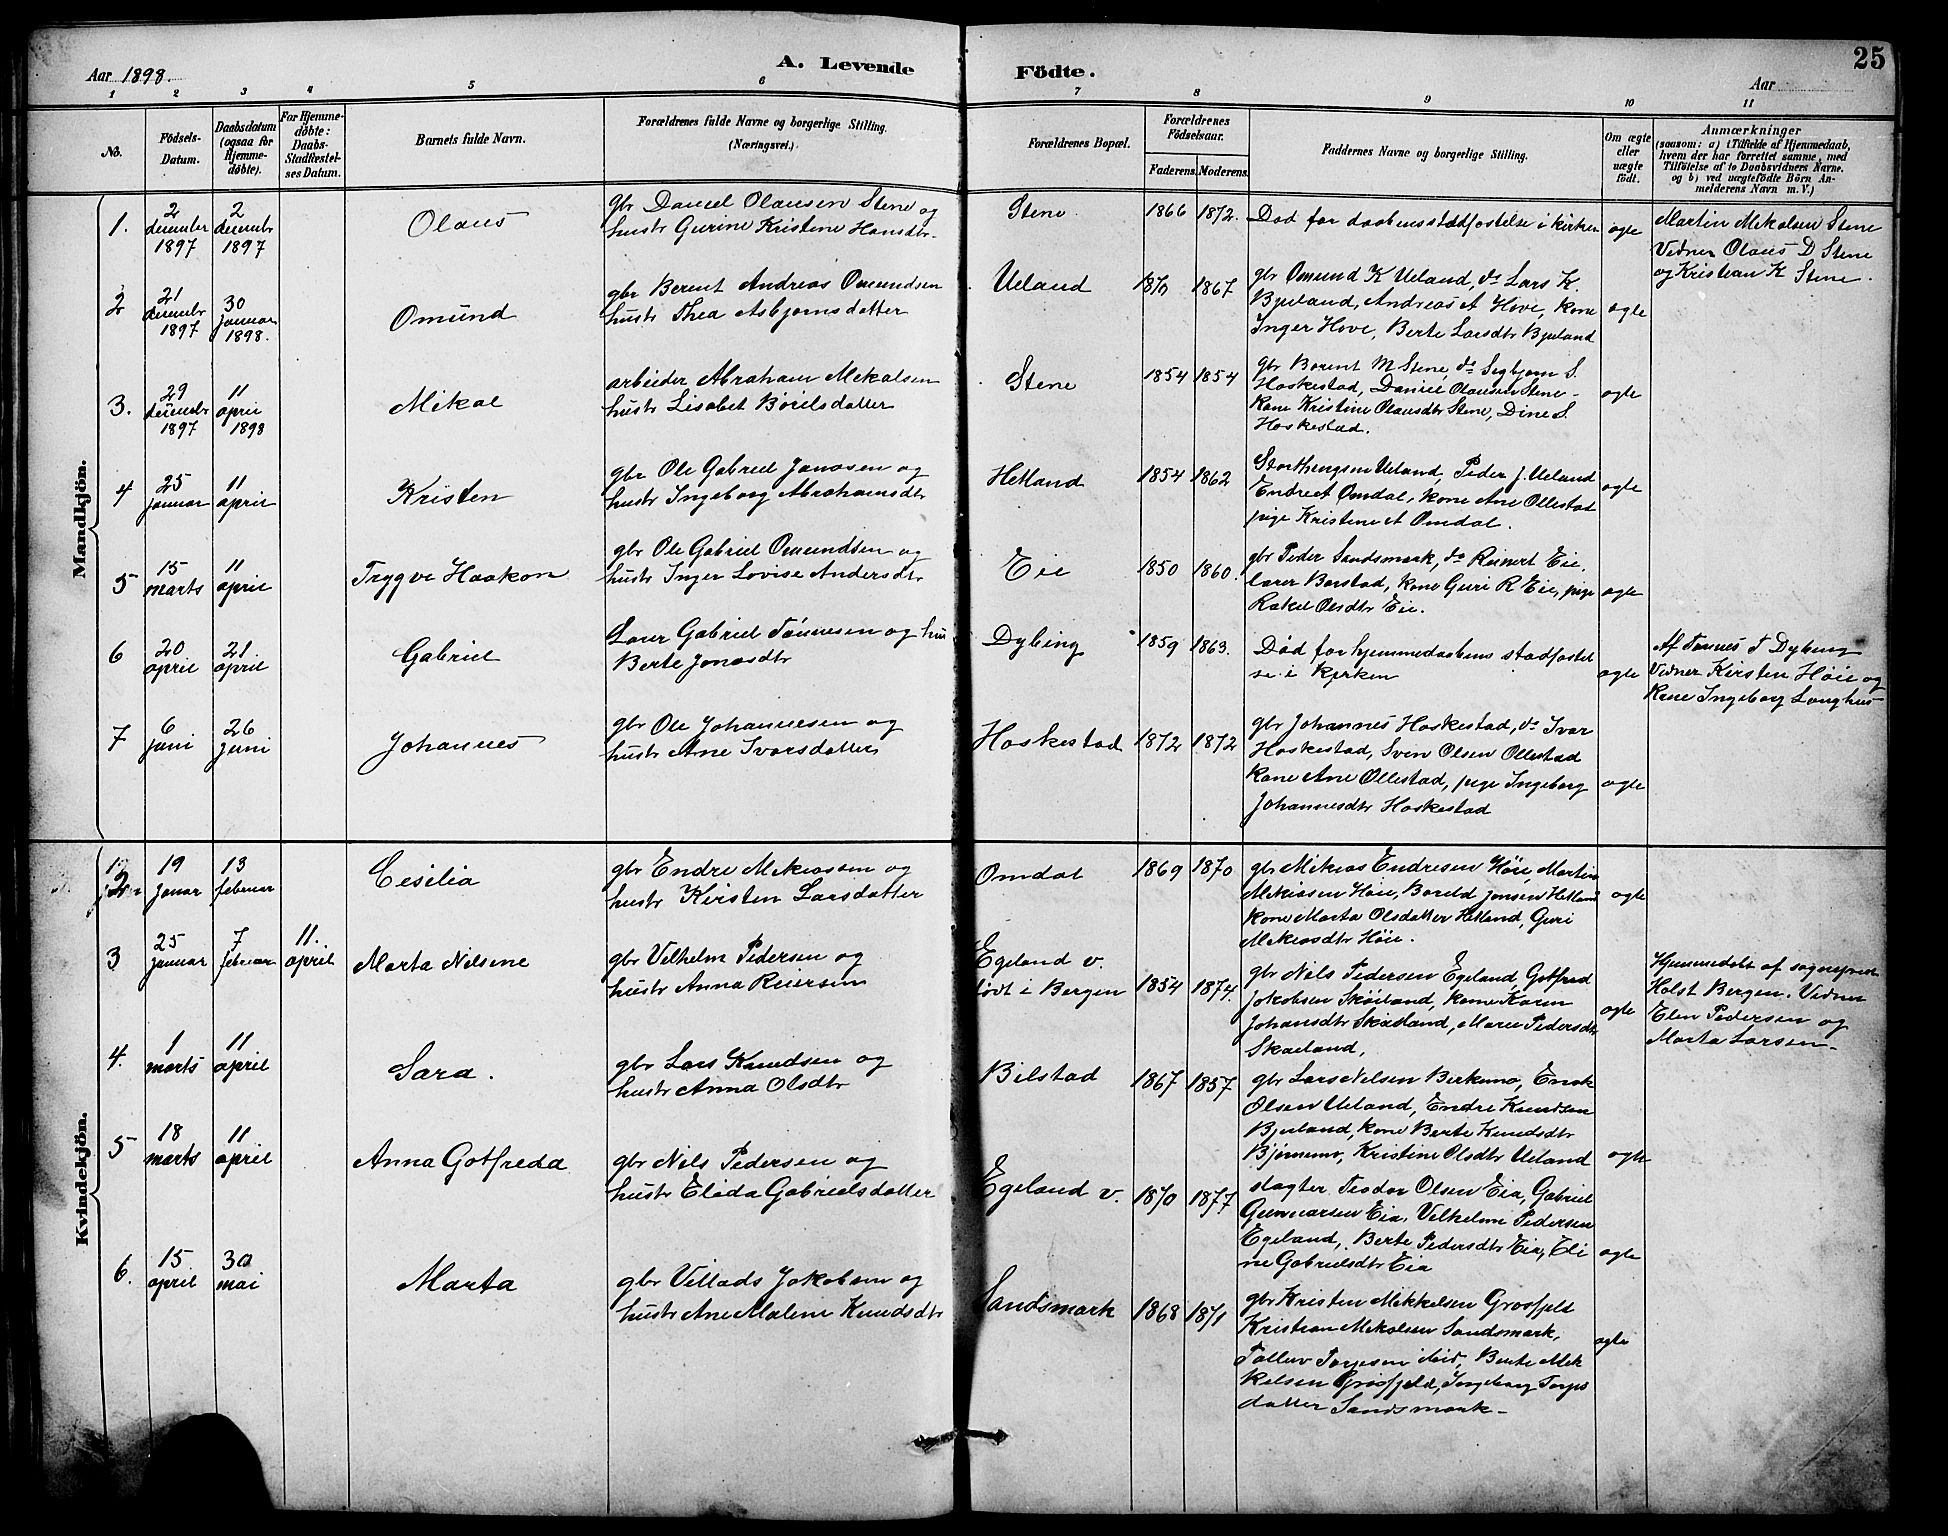 Aar 1898.
A. Levende
Födte.
Aar
25
1 2 3 4 5 6 7 8 9 10 11
No.
Födsels-
Datum.
Daabsdatum
(ogsaa for
Hjemme-
döbte).
For Hjemme-
döbte:
Daabs-
Stadfæstel-
ses Datum.
Barnets fulde Navn.
Forældrenes fulde Navne og borgerlige Stilling.
(Næringsvei.)
Forældrenes Bopæl.
Forældrenes
Födselsaar.
Faderens. Moderens.
Faddernes Navne og borgerlige Stilling.
Om ægte
eller
uægte
födt.
Anmærkninger
(saasom: a) i Tilfælde af Hjemmedaab,
hvem der har forrettet samme, med
Tilföielse af to Daabsvidners Navne.
og b) ved uægtefödte Börn An-
melderens Navn m. V.)
Mandkjön.
1.
2
december
1897
2
decembr
1897
Olaus
gbr Daniel Olausen Stene og
hustr Gurine Kristine Hansdtr
Stene
1866 1872.
Død før daabens stadfæstelse i kirken
ægte
Martin Mekalsen Stene
Vidner Olaus D Stene
og Kristian K Stene.
2
21
decembr
1897
30
januar
1898.
Omund
gbr Berent Andreas Omundsen
hustr Thea Asbjørnsdatter
Ueland
1870 1867
gbr Omund K Ueland, do Lars K.
Bjuland, Andreas A Hove, kone
Inger Hove, Berte Larsdtr Bjuland
ægte
3.
29
decembr
1897
11
april
1898
Mikal
arbeider Abraham Mekalsen
hustr Lisabet Boielsdatter
Stene
1854 1854
gbr Berent M Stene, do Segbjørn S.
Haskestad, Daniel Olausen Stene
kone Kristine Olausdtr Stene, Dine S.
Haskestad.
ægte
4
25
januar
11
april
Kristen
gbr Ole Gabriel Janasen og
hustr Ingeborg Abrahamsdtr
Hetland
1854 1862
Ueland, Peder J. Ueland
Endre A Omdal, kone Ane Ollestad
pige Kristine A Omdal.
ægte
5
15
marts
11
april
Trygve Haakon
gbr Ole Gabriel Omundsen og
hustr Inger Lovise Andersdtr
Eie
1850 1860.
gbr Peder Sandsmark, do Reinert Eie.
lærer Barstad, kone Guri R Eie, pige
Rakel Olsdtr Eie.
ægte
6
20
april
21.
april
Gabriel
Lærer Gabriel Tønnesen og hus
Berte Jonasdtr
Dybing
1859 1863.
Død før hjemmedaabens stadfæstel
se i kirken
ægte
Af Tønnes T Dybing
Vidner Kirsten Høie og
Kone Ingeborg Langhus
7
6
juni
26
juni
Johannes
gbr Ole Johannesen og
hustr Ane Ivarsdatter
Haskestad
1872 1872
gbr Johannes Haskestad, do Ivar
Haskestad, Sven Olsen Ollestad
Kone Ane Ollestad, pige Ingeborg
Johannesdtr Haskestad
ægte
Kvindekjön.
2
19
januar
13
februar
Cesilia
gbr Endre Mekiasen og
hustr Kirsten Larsdatter
Omdal
1869 1870
gbr Mikias Endresen Høie, Martin
Mekiasen Høie, Boreld Jonsen Hetland
kone Marta Olsdatter Hetland, Guri
Mekiasdtr Høie.
ægte
3
25
januar
7
februar
11.
april
Marta Nilsine
gbr Velhelm Pedersen og
hustr Anna Reiersen
Egeland v.
født i Bergen
1854 1874.
gbr Nils Pedersen Egeland, Gotfred
Jakobsen Skæiland, kone Karen
Johansdtr Skæiland, Maree Pedersdtr
Skæiland,
ægte
Hjemmedøbt af sognepræst
Holst Bergen. Vidner
Elen Pedersen og
Marta Larsen
4.
1
marts
11
april
Sara.
gbr Lars Knudsen og
hustr Anna Olsdtr
Bilstad
1867 1857
gbr Lars Nelsen Berkemo, Enok
Olsen Ueland, Endre Knudsen
Bjuland, kone Berte Knudsdtr
Bjørnemo, Kristine Olsdtr Ueland
ægte
5
18
marts
11
april
Anna Gotfreda
gbr Nils Pedersen og
hustr Elida Gabrielsdatter
Egeland v.
1870 1877
slagter Teodor Olsen Eia, Gabriel
Gunnarsen Eia, Velhelm Pedersen
Egeland, Berte Pedersdtr Eia, Eli
ne Gabrielsdtr Eia
ægte
6.
15
april
30
mai
Marta
gbr Villads Jakobsen og
hustr Ane Malene Knudsdtr
Sandsmark
1868 1871
gbr Kristen Mikkelsen Grøsfjeld
Kristian Mikalsen Sandsmark,
Tallev Torjesen ibid, Berte Mek
kelsen Grøsfjeld, Ingeborg Torjes
datter Sandsmark
ægte